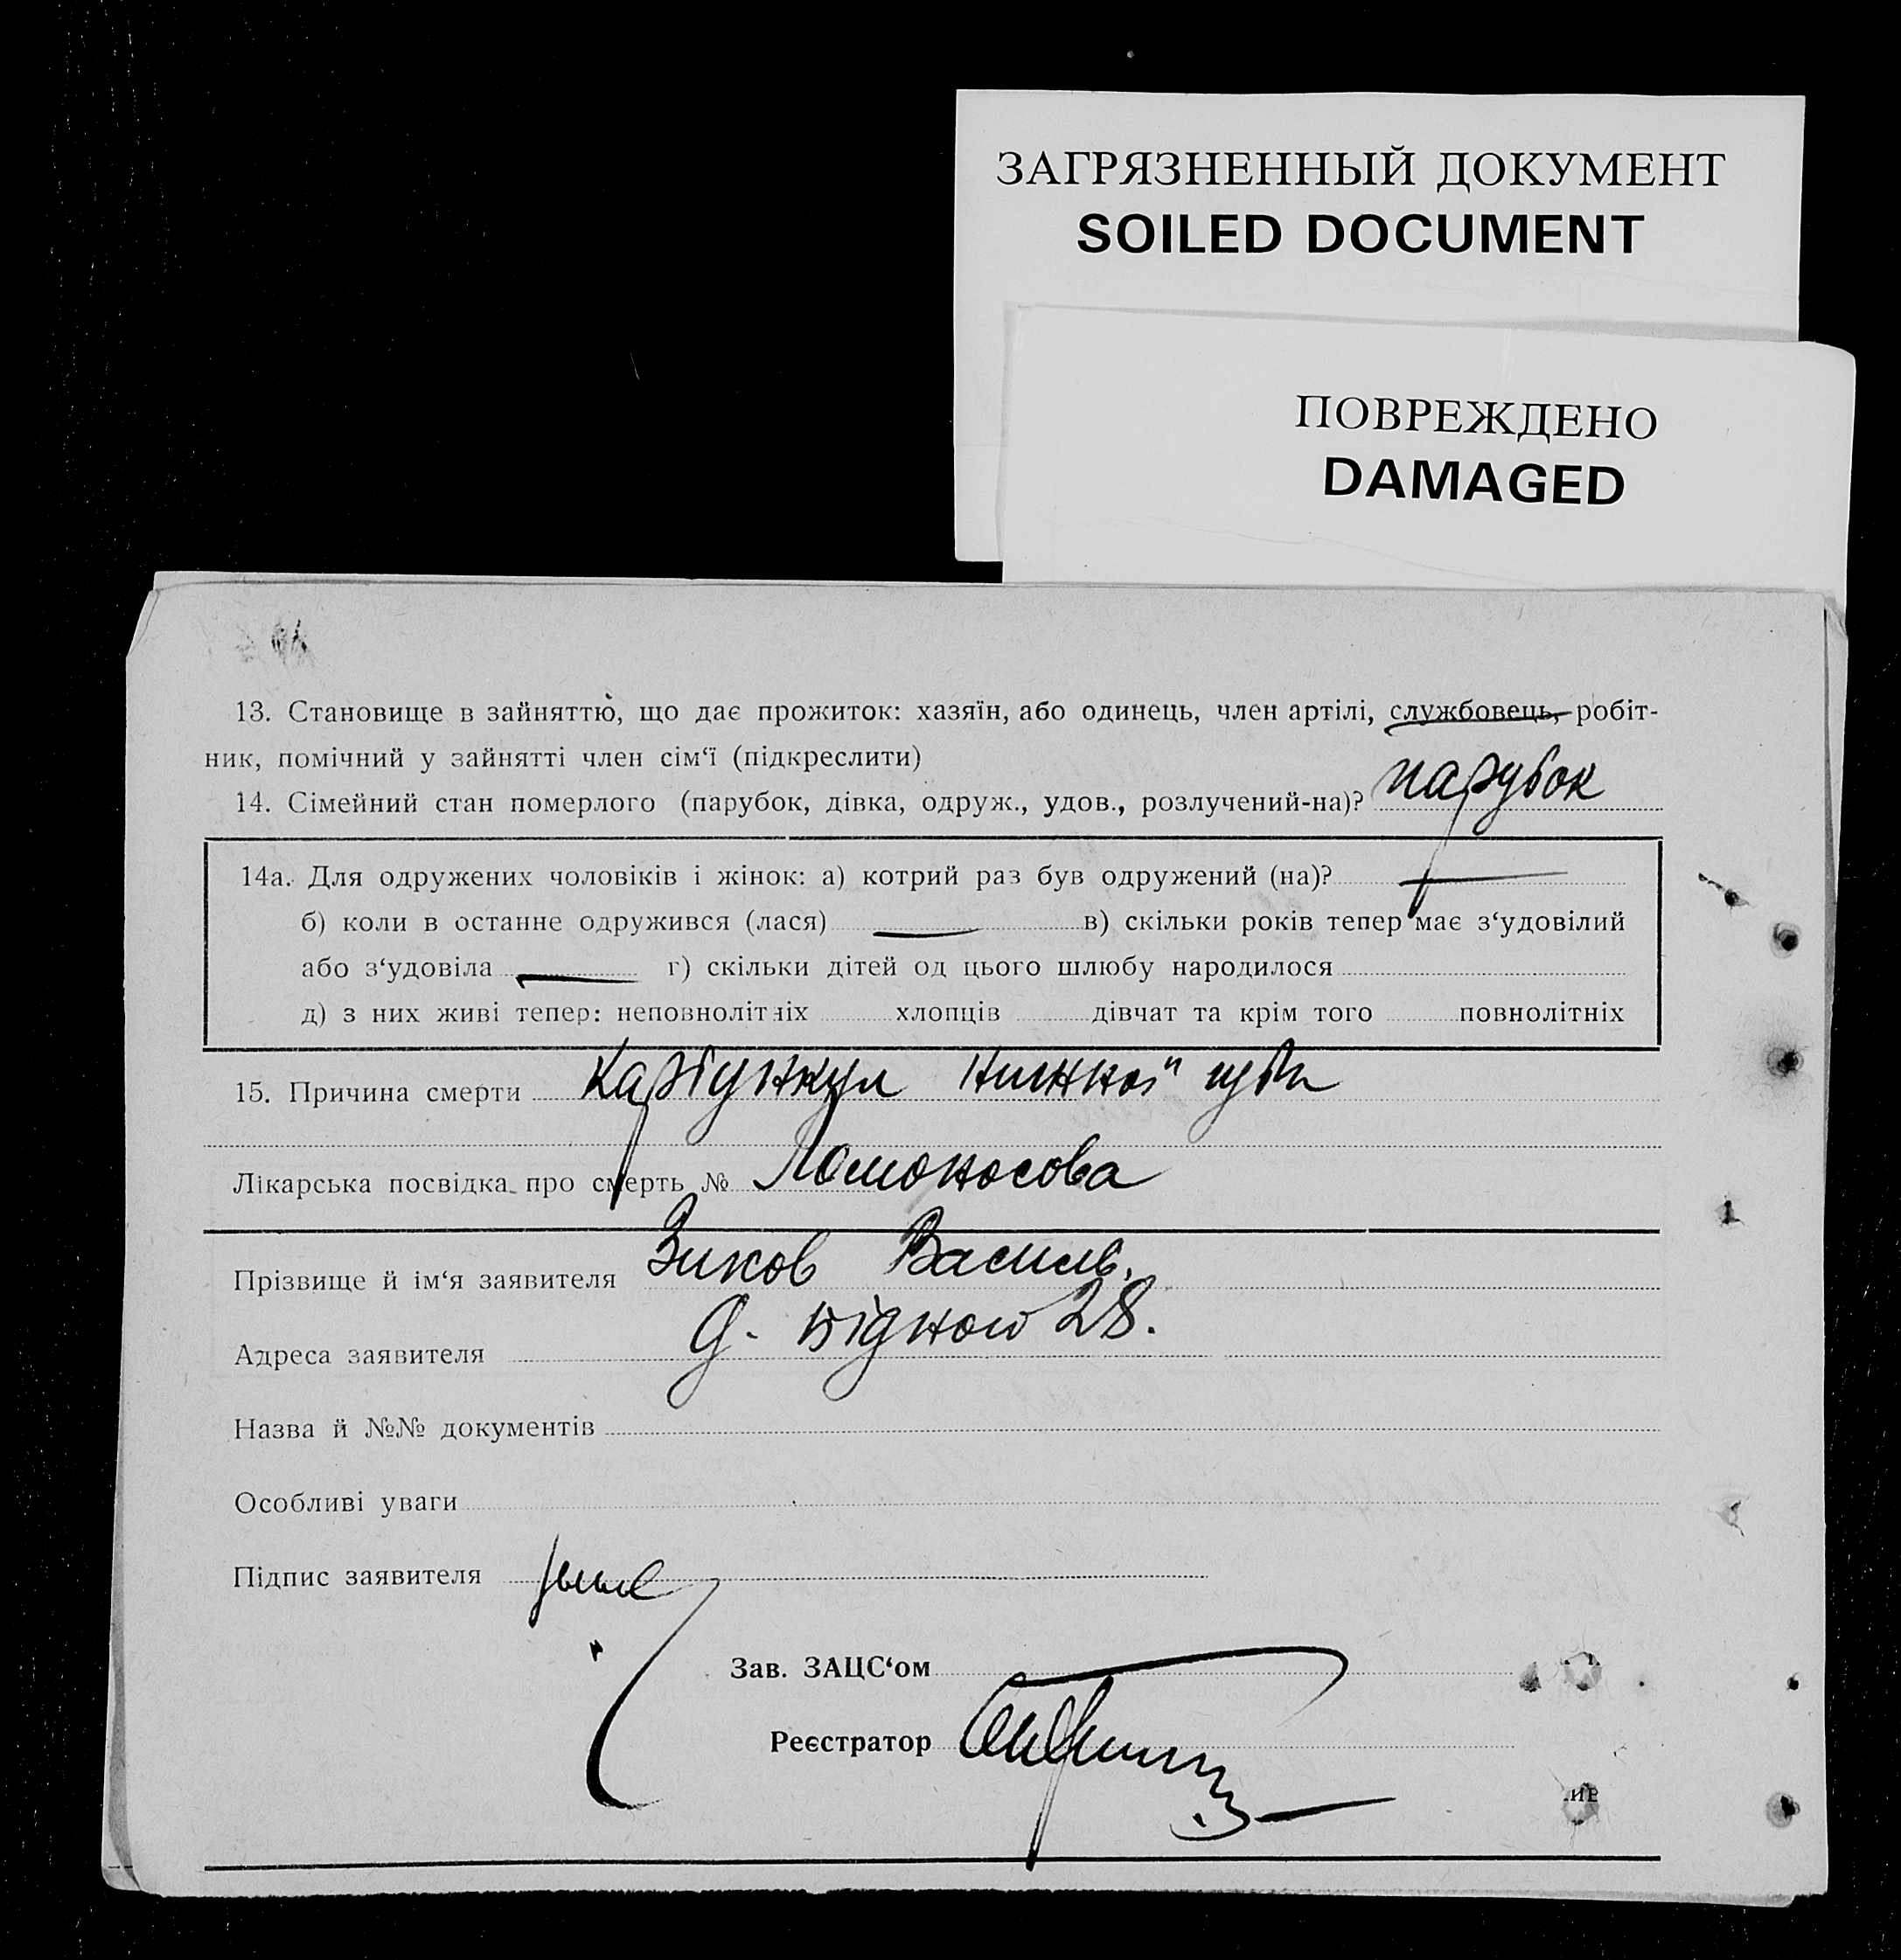 ЗАГРЯЗНЕННЫЙ ДОКУМЕНТ
SOILED DOCUMENT
ПОВРЕЖДЕНО
DAMAGED
13. Становище в зайняттю, що дає прожиток: хазяїн, або одинець, член артілі, службовець, робіт-
ник, помічний у зайнятті член сім‘ї (підкреслити)
14. Сімейний стан померлого (парубок, дівка, одруж., удов., розлучений-на)? парубок
14а. Для одружених чоловіків і жінок: а) котрий раз був одружений (на)? —
б) коли в останне одружився (лася) — в) скільки років тепер має з‘удовілий
або з‘удовіла — г) скільки дітей од цього шлюбу народилося
д) з них живі тепер: неповнолітніх хлопців дівчат та крім того повнолітніх
15. Причина смерти Карбункул нижной губи
Лікарська посвідка про смерть № Ломоносова
Прізвище й ім‘я заявителя Зиков Василь.
Адреса заявителя 28.
Назва й №№ документів
Особливі уваги
Підпис заявителя
Зав. ЗАЦС‘ом
Реєстратор